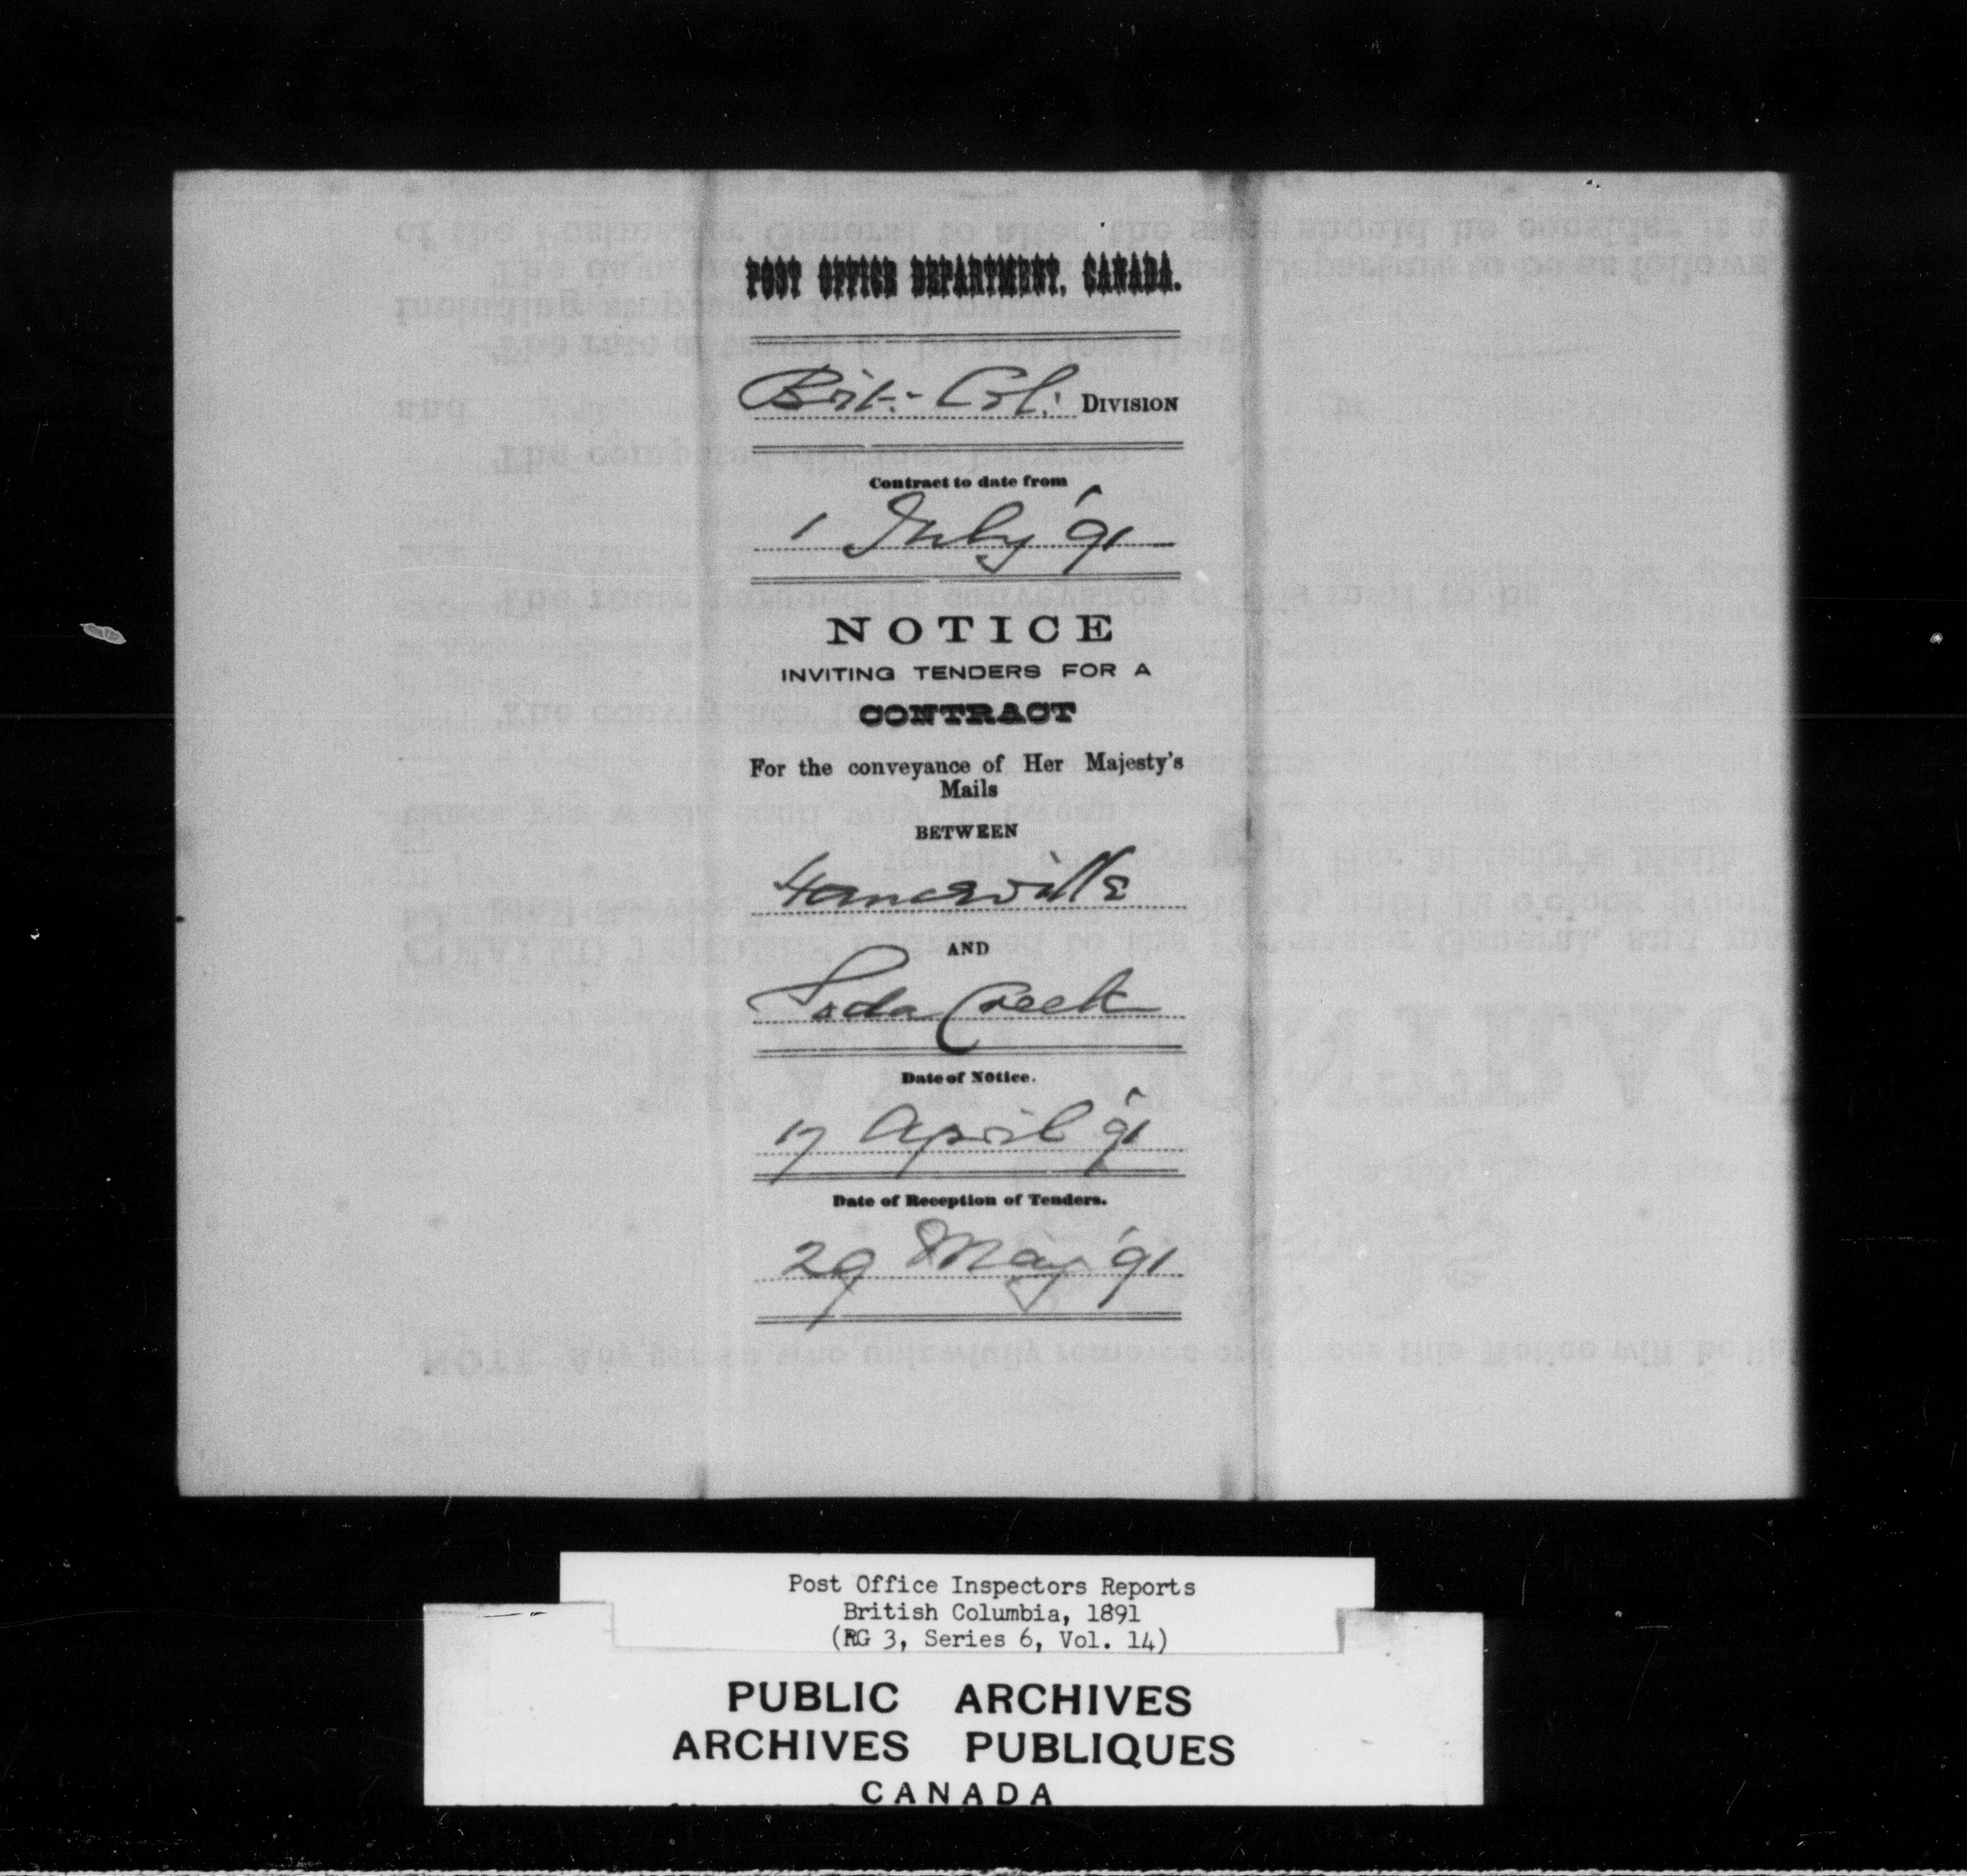 POST OFFICE DEPARTMENT, CANADA.
Brit.- Col. DIVISION
Contract to date from
1 July '91
NOTICE
INVITING TENDERS FOR A
CONTRACT
For the conveyance of Her Majesty's
Mails
BETWEEN
AND
Soda Creek
Date of Notice.
17 April '91
Date of Reception of Tenders.
29 May '91
Post Office Inspectors Reports
British Columbia, 1891
(RG 3, Series 6, Vol. 14)
PUBLIC ARCHIVES
ARCHIVES PUBLIQUES
CANADA